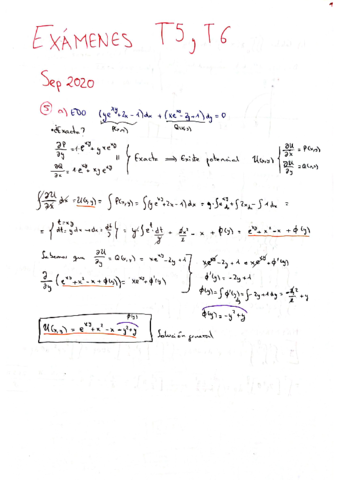 EXÁMENES T5, T6
Sep 2020
⑤ a) EDO (ye^{xy}+2x-1)dx + (xe^{xy}-2y+1)dy = 0
P(x,y) Q(x,y)
¿Exacta?
∂P/∂y = 1·e^{xy} + yxe^{xy}
∂Q/∂x = 1e^{xy} + xye^{xy}
= { Exacta ⟹ Existe potencial U(x,y) { ∂U/∂x = P(x,y)
∂U/∂y = Q(x,y)
∫∂U/∂x dx = U(x,y) = ∫P(x,y) = ∫(ye^{xy}+2x-1)dx = y·∫e^{xy} + ∫2x - ∫1dx =
= { t=xy dt=ydx → dx=dt/y } = y∫e^t dt/y + 2x²/2 - x + φ(y) = e^{xy}+x²-x+φ(y)
Sabemos que ∂U/∂y = Q(x,y) = xe^{xy}-2y+1
∂/∂y (e^{xy}+x²-x+φ(y)) = xe^{xy}+φ'(y)
xe^{xy}-2y+1 = xe^{xy}+φ'(y)
φ'(y) = -2y+1
φ(y) = ∫φ'(y) = ∫-2y+1dy = -2y²/2 + y
φ(y) = -y²+y
φ(y)
U(x,y) = e^{xy}+x²-x-y²+y
Solución general